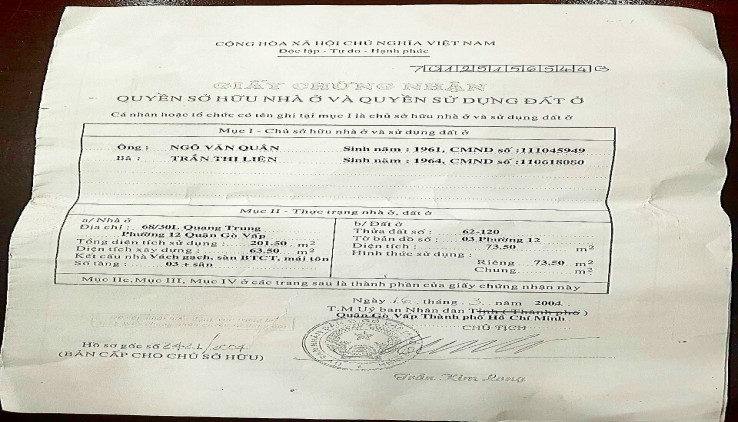 CỘNG HÒA XÃ HỘI CHỦ NGHĨA VIỆT NAM
Độc lập - Tự do - Hạnh phúc
GIẤY CHỨNG NHẬN
QUYỀN SỞ HỮU NHÀ Ở VÀ QUYỀN SỬ DỤNG ĐẤT Ở
Cá nhân hoặc tổ chức có tên ghi tại mục I là chủ sở hữu nhà ở và sử dụng đất ở
Mục I - Chủ sở hữu nhà ở và sử dụng đất ở
Ông : NGÔ VĂN QUÂN Sinh năm : 1961, CMND số :111045949
Bà : TRẦN THỊ LIÊN Sinh năm : 1964, CMND số :110618080
Mục II - Thực trạng nhà ở, đất ở
a/ Nhà ở
Địa chỉ : 68/30L Quang Trung
Phường 12 Quận Gò Vấp
Tổng diện tích sử dụng : 201.50 m2
Diện tích xây dựng : 63.50 m2
Kết cấu nhà Vách gạch, sàn BTCT, mái tôn
Số tầng : 03 + sân
b/ Đất ở
Thửa đất số : 62-120
Tờ bản đồ số : 03 Phường 12
Diện tích : 73.50 m2
Hình thức sử dụng :
Riêng : 73.50 m2
Chung m2
Mục IIc, Mục III, Mục IV ở các trang sau là thành phần của giấy chứng nhận này
Ngày 16 tháng 3 năm 2004
T.M Uỷ ban Nhân dân Tỉnh ( Thành phố )
Quận Gò Vấp Thành phố Hồ Chí Minh
CHỦ TỊCH
Hồ sơ gốc số /2004
(BẢN CẤP CHO CHỦ SỞ HỮU)
Trần Kim Long